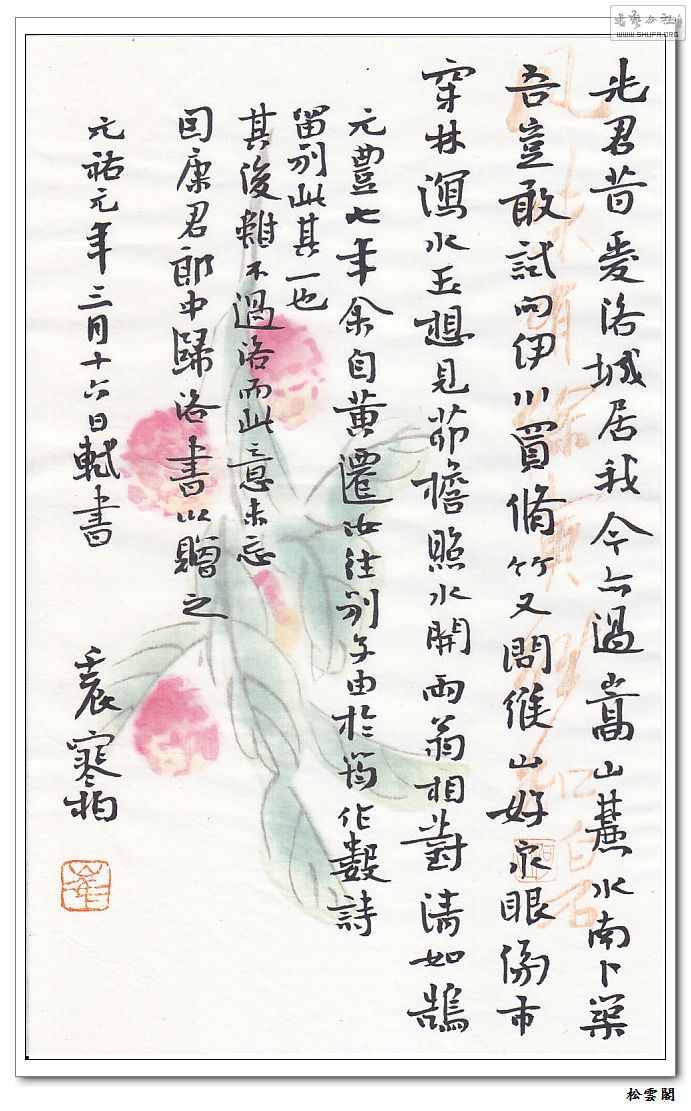 先君昔爱洛城居我今亦過嵩山麓水南卜築
吾豈敢試向伊川買脩竹又聞緱山好泉眼傍市
穿林瀉水玉想見茆檐照水開兩翁相對清如鵠
元豐七年余自黄遷汝往别子由於筠作數詩
留别此其一也
其後雖不過洛而此意未忘
因康君郎中歸洛書以贈之
元祐元年三月十六日軾書
壬辰寒柏
松雲閣
WWW.SHUFA.ORG